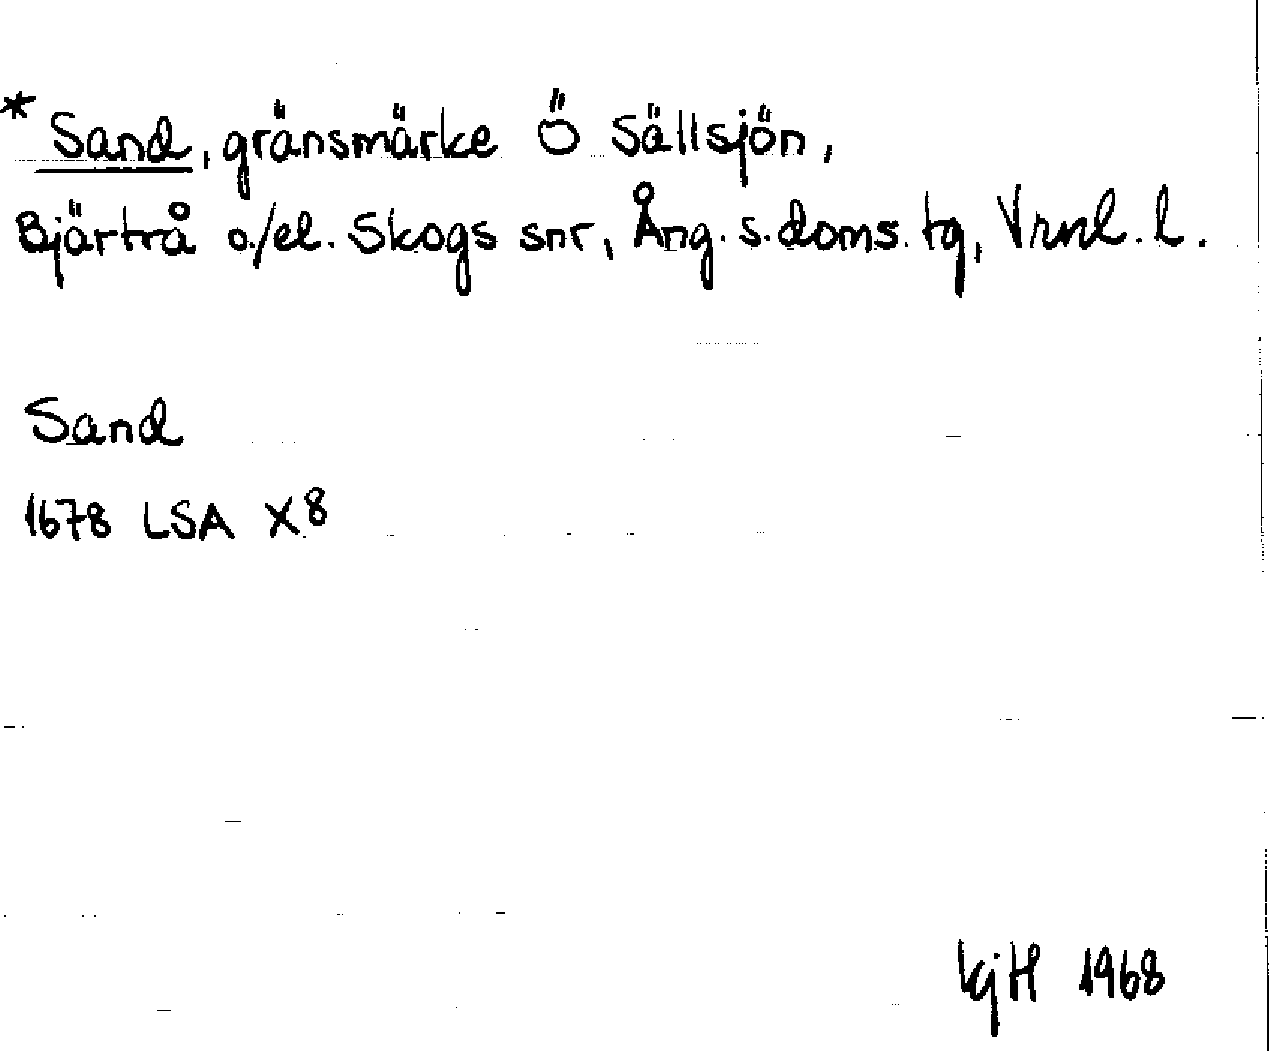 * Sand, gränsmärke Ö Sällsjön,
Bjärtrå o./el. Skogs snr, Ång. s. doms. tg, Vrnl. l.
Sand
1678 LSA X8
kjH 1968